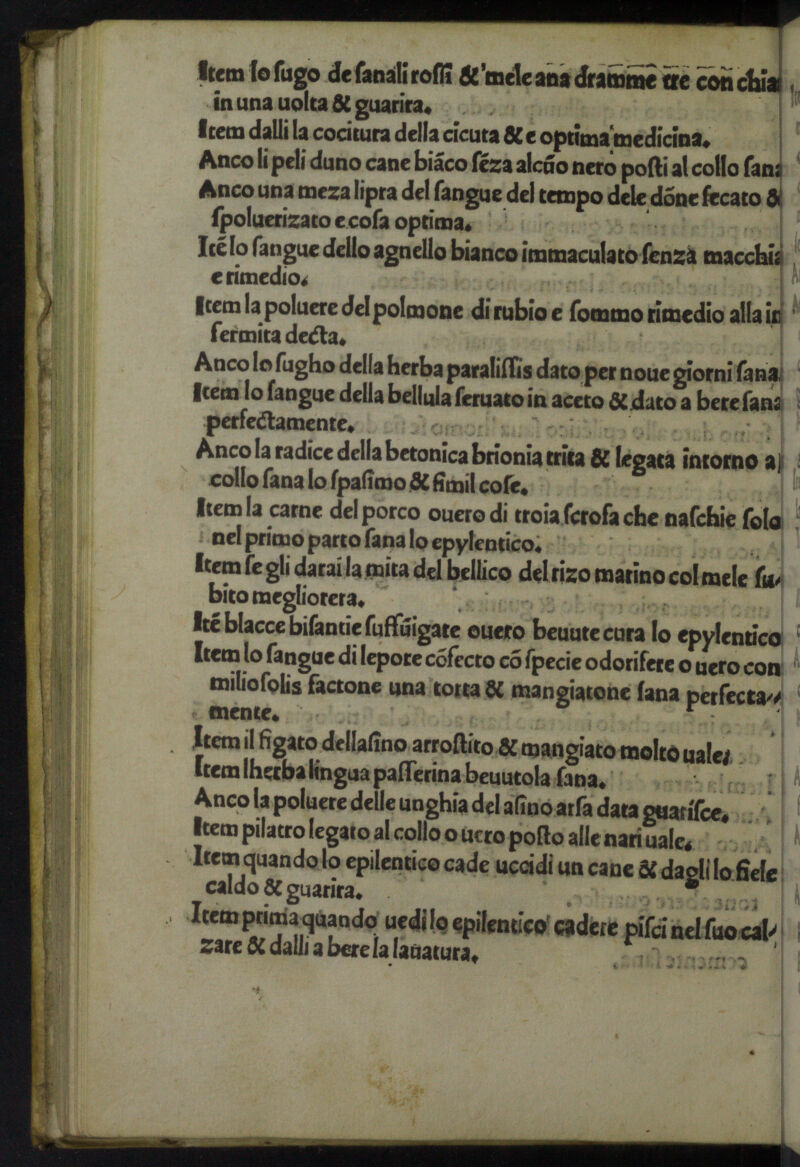 Item lo ſugo de ſanali roſſi &'mele ana dramme tre con chia
in una uolta & guarira.
Item dalli la cocitura della cicuta & e optima medicina.
Anco li peli duno cane biãco ſẽza alcũo nero poſti al collo ſana
Anco una meza lipra del ſangue del tempo dele dõne ſecato &
ſpoluerizato e coſa optima.
Itẽ lo ſangue dello agnello bianco immaculato ſenza macchia
e rimedio.
Item la poluere del polmone di rubio e ſommo rimedio alla in
fermita decta.
Anco lo ſugho della herba paraliſſis dato per noue giorni ſana.
Item lo ſangue della bellula ſeruato in aceto & dato a bere ſana
perfectamente.
Anco la radice della betonica brionia trita & legata intorno al
collo ſana lo ſpaſimo & ſimil coſe.
Item la carne del porco ouero di troia ſcrofa che naſchie ſolo
nel primo parto ſana lo epylentico.
Item ſe gli darai la mita del bellico del rizo marino col mele ſu⸗
bito megliorera.
Itẽ blacce biſantie ſuffũigate ouero beuute cura lo epylentico
Item lo ſangue di lepore cõfecto cõ ſpecie odorifere o uero con
milioſolis factone una torta & mangiatone ſana perfecta⸗
mente.
Item il figato dellaſino arroſtito & mangiato molto uale.
Item lherba lingua paſſerina beuutola ſana.
Anco la poluere delle unghia del aſino arſa data guariſce.
Item pilatro legato al collo o uero poſto alle nari uale.
Item quando lo epilentico cade uccidi un cane & dagli lo fiele
caldo & guarira.
Item prima quando uedi lo epilentico cadere piſci nel ſuo cal⸗
zare & dalli a bere la lauatura.